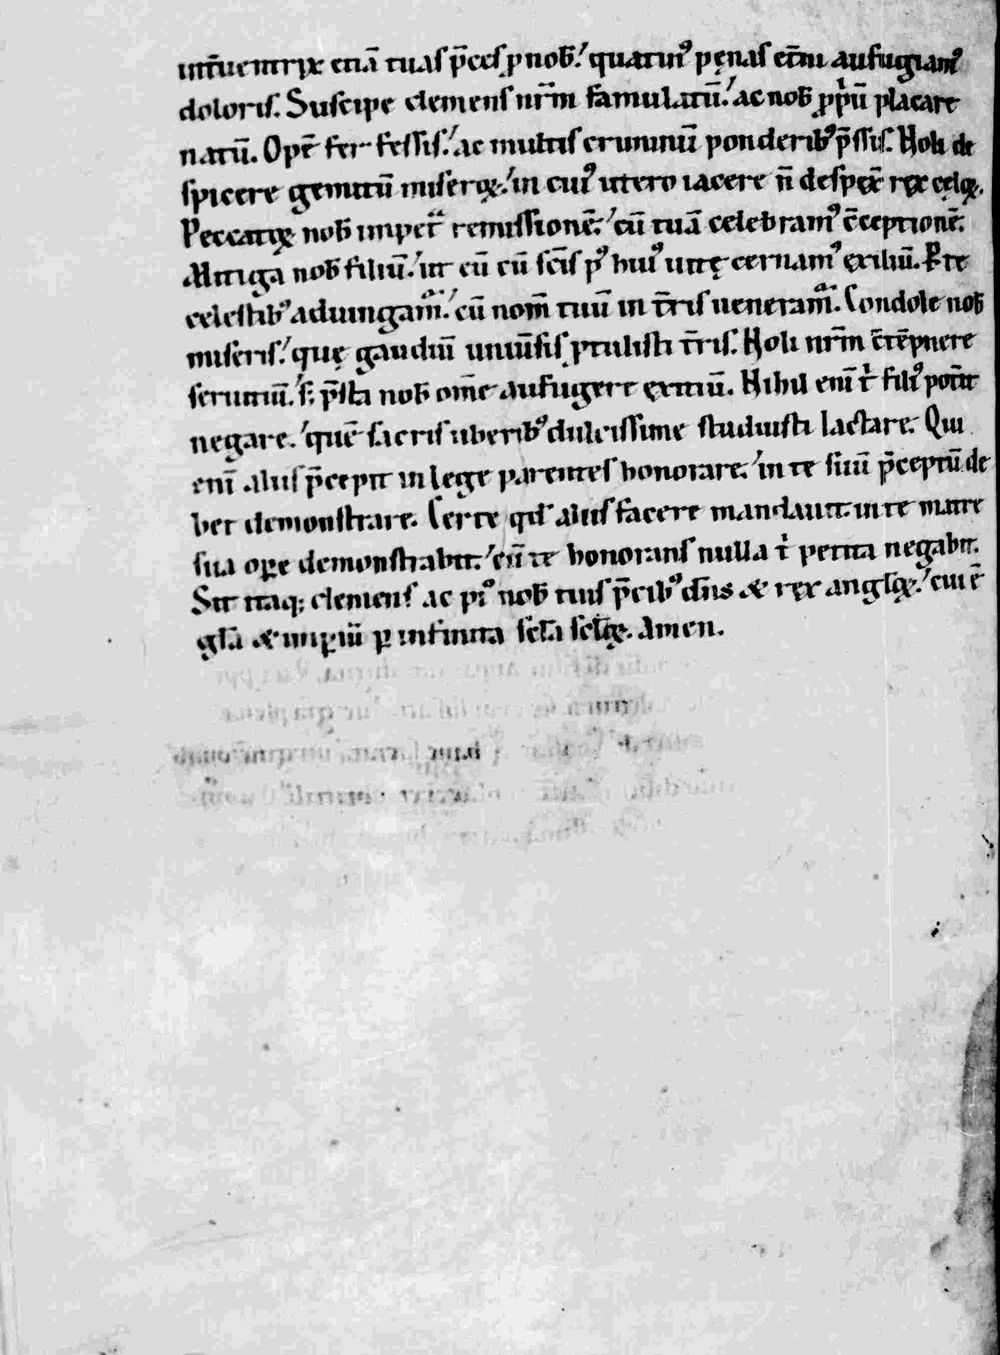 int̄uentrix etiā tuas p̄ces ꝓ nob̄.' quatin᷒ pęnas et̄ni aufugiam᷒
doloris. Suscipe clemens nr̄m famulatū.' ac nob̄ ꝓpⁱū placare
natū. Opē fer fessis.' ac multis criminū ponderib᷒ p̄ssis. Noli de
spicere gemitū miseroꝝ.' in cui᷒ utero iacere n̄ despex̄ rex celoꝝ.
Peccatoꝝ nob̄ impetᵃ remissionē.' cū tuā celebram᷒ c̄ceptionē.
Mitiga nob̄ filiū.' ut eū cū sc̄is p᷒ hui᷒ uitę cernam᷒ exiliū. P te
celestib᷒ adiungam̄.' cū nom̄ tuū in t̄ris ueneram̄. Condole nob̄
miseris.' quę gaudiū uniūsis ꝓtulisti t̄ris. Noli nr̄m c̄tēpnere
seruitiū.' s; p̄sta nob̄ om̄e aufugere exitiū. Nihil enī tⁱ fili᷒ pot̄it
negare.' quē sacris uberib᷒ dulcissime studuisti lactare. Qui
enī aliis p̄cepit in lege parentes honorare.' in te suū p̄ceptū de
bet demonstrare. Certe qđ aliis facere mandauit. in te matre
sua oꝑe demonstrabit.' cū te honorans nulla tⁱ petita negabit.
Sit itaq; clemens ac pi᷒ nob̄ tuis p̄cib᷒ dn̄s & rex angloꝝ.' cui ē
gl̄a & imꝑiū ꝑ infinita scl̄a scl̄oꝝ. Amen.